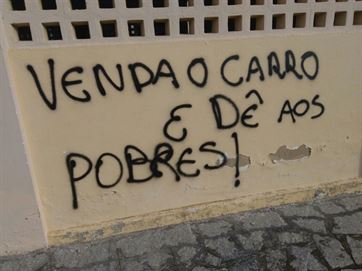 VENDA O CARRO
E DÊ AOS
POBRES!